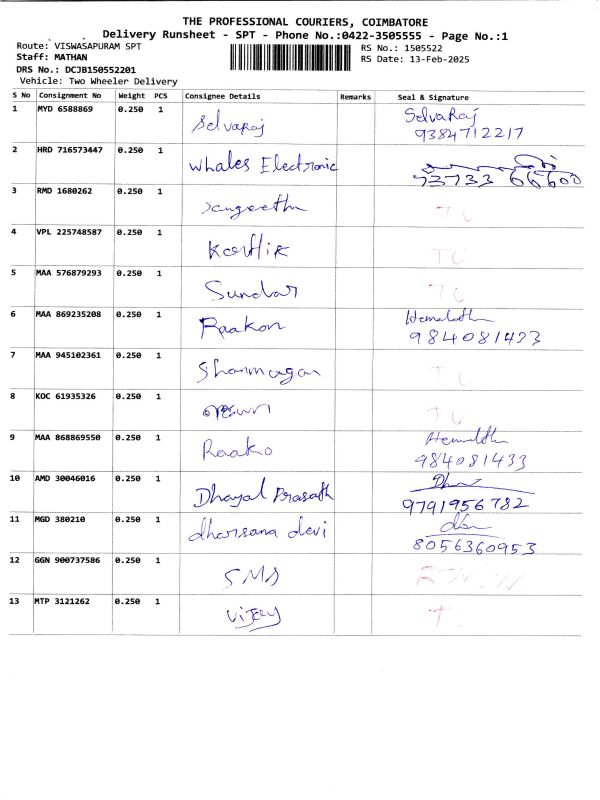 THE PROFESSIONAL COURIERS, COIMBATORE
Delivery Runsheet - SPT - Phone No.:0422-3505555 - Page No.:1
Route: VISWASAPURAM SPT
RS No.: 1505522
Staff: MATHAN
RS Date: 13-Feb-2025
DRS No.: DCJB150552201
Vehicle: Two Wheeler Delivery
S No Consignment No Weight PCS Consignee Details Remarks Seal & Signature
1 MYD 6588869 0.250 1 Selvaraj SelvaRaj
9384712217
2 HRD 716573447 0.250 1 Whales Electronic
93733 66600
3 RMD 1680262 0.250 1 Sangeetha
4 VPL 225748587 0.250 1 Karthik
5 MAA 576879293 0.250 1 Sundar
6 MAA 869235208 0.250 1 Raakon Hemalatha
984081433
7 MAA 945102361 0.250 1 Shanmugan
8 KOC 61935326 0.250 1
9 MAA 868869550 0.250 1 Raako
984081433
10 AMD 30046016 0.250 1 Dhayal Prasath
9791956782
11 MGD 380210 0.250 1 dharsana devi
8056360953
12 GGN 900737586 0.250 1 SMS
13 MTP 3121262 0.250 1 Vijay